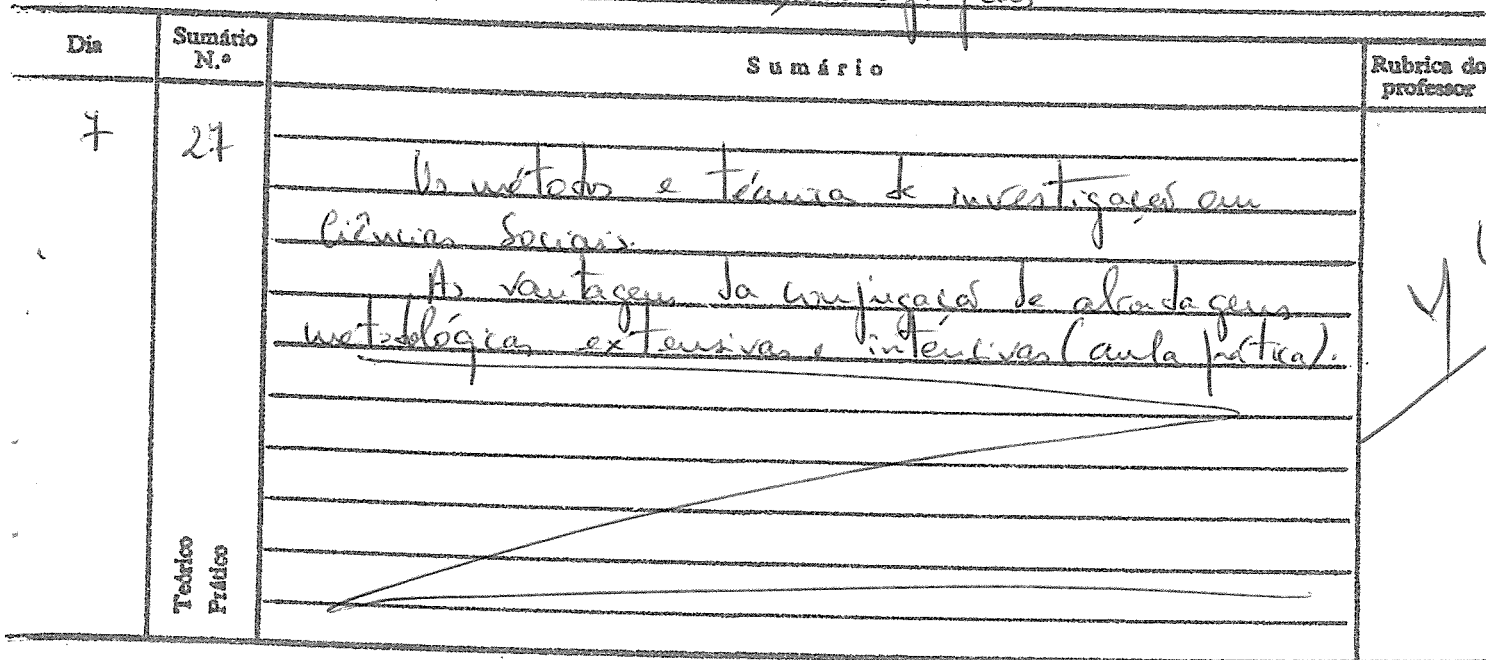 Dia
Sumário N.º
Sumário
Rubrica do professor
7
27
Os métodos e técnicas de investigação em
Ciências Sociais.
As vantagens da conjugação de abordagens
metodológicas extensivas e intensivas (aula prática).
Teórico
Prático